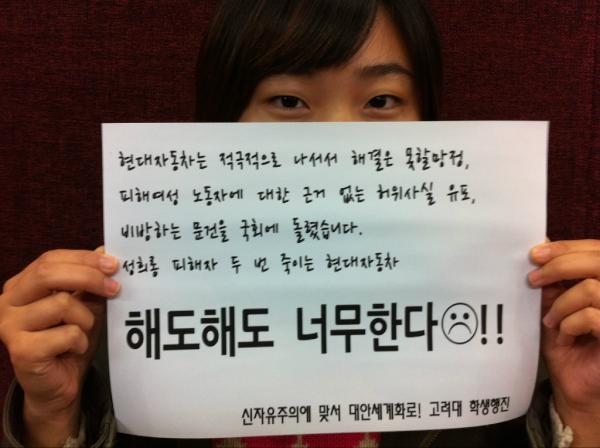 현대자동차는 적극적으로 나서서 해결은 못할망정,
피해여성 노동자에 대한 근거 없는 허위사실 유포,
비방하는 문건을 국회에 돌렸습니다.
성희롱 피해자 두 번 죽이는 현대자동차
해도해도 너무한다☹!!
신자유주의에 맞서 대안세계화로! 고려대 학생행진